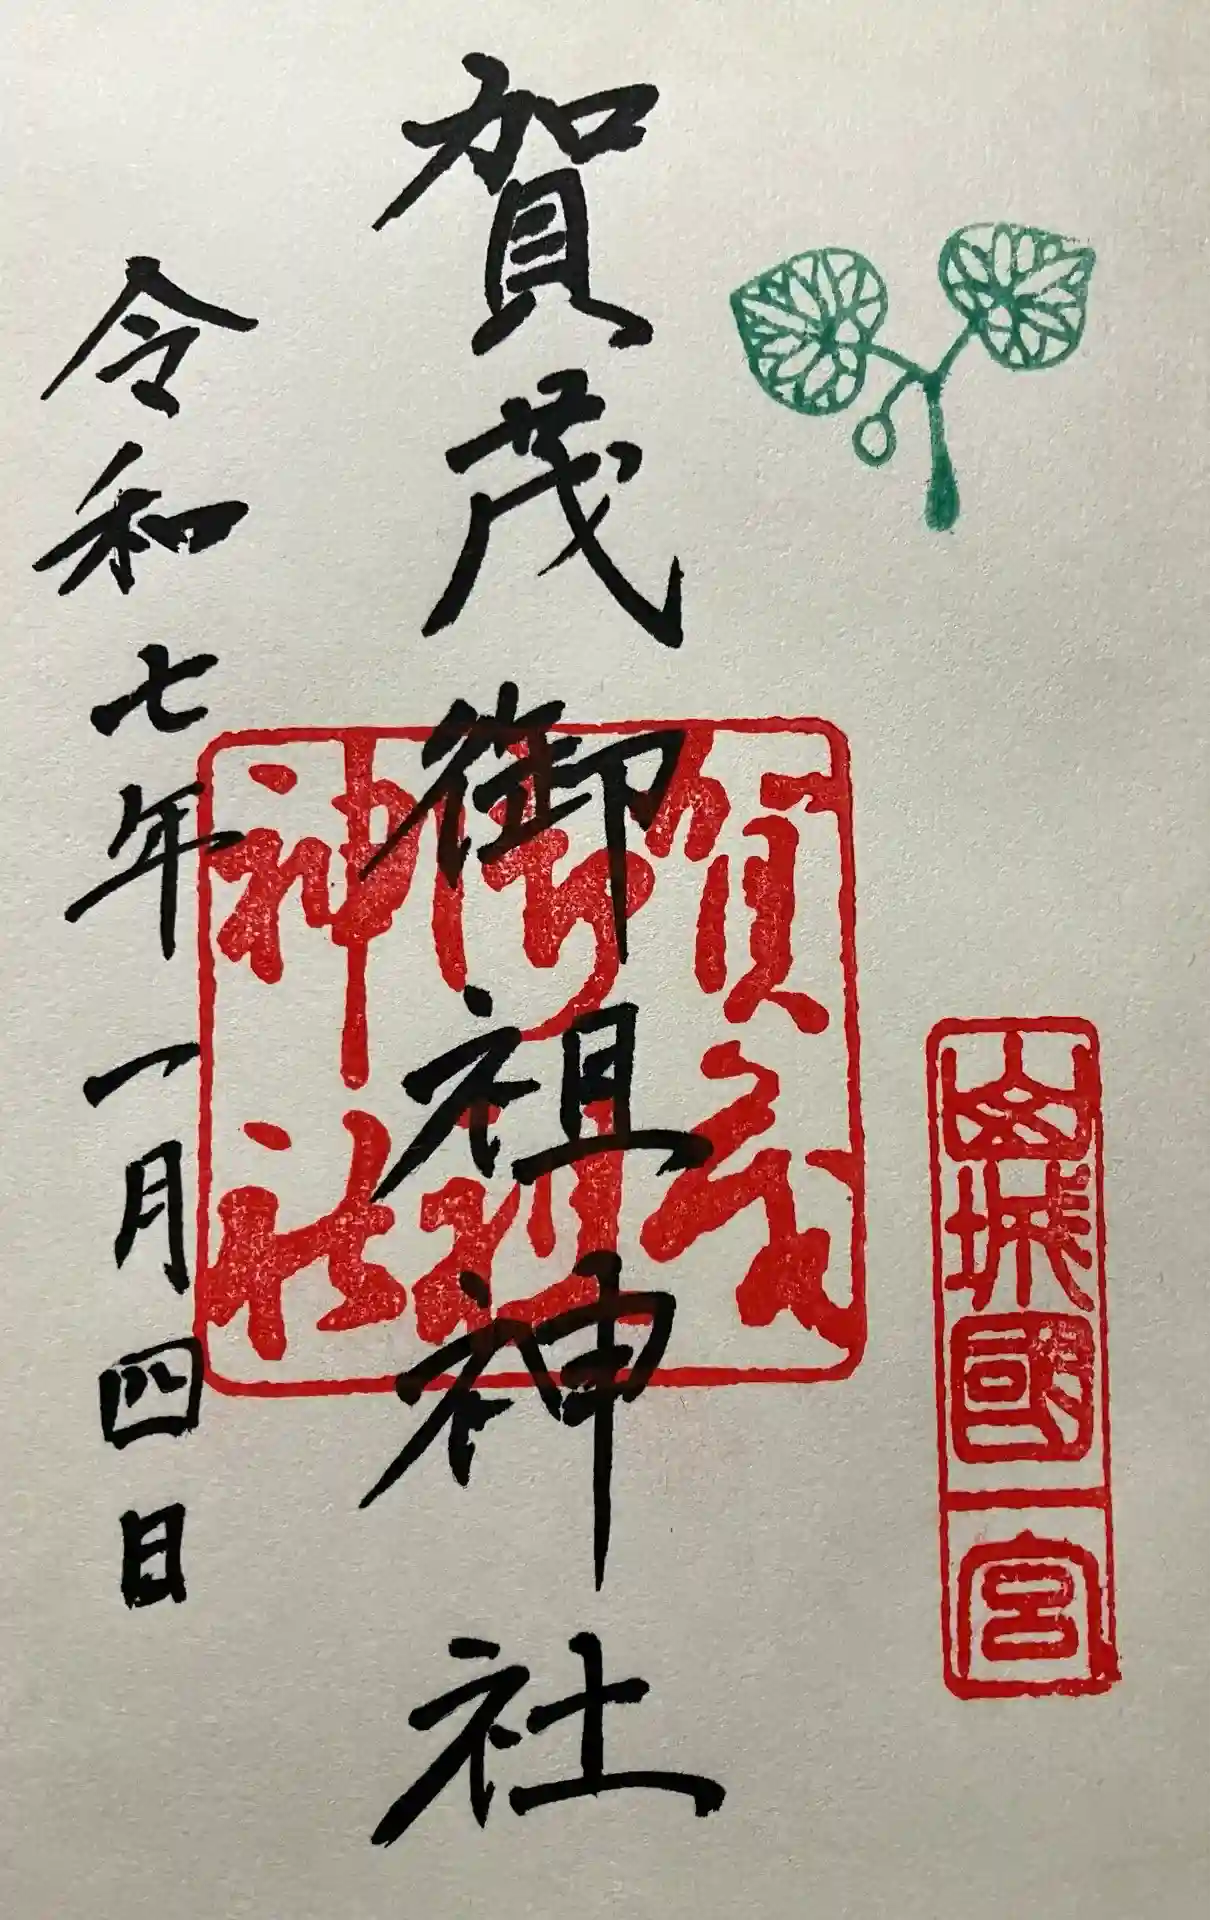 山城國一宮
賀茂御祖神社
賀茂
御祖
神社
令和七年一月四日